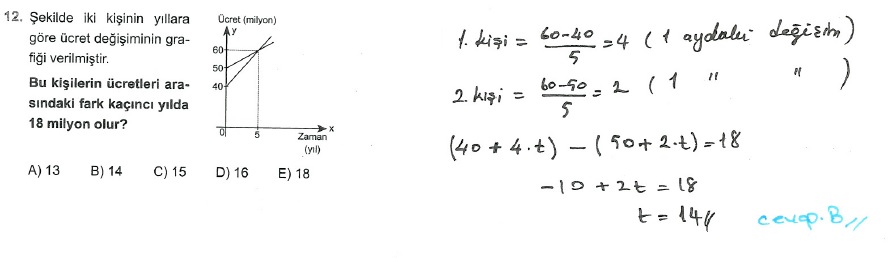 12. Şekilde iki kişinin yıllara
göre ücret değişiminin gra-
fiği verilmiştir.
Bu kişilerin ücretleri ara-
sındaki fark kaçıncı yılda
18 milyon olur?
Ücret (milyon)
y
60
50
40
0
5
x
Zaman
(yıl)
A) 13 B) 14 C) 15 D) 16 E) 18
1. kişi = 60-40/5 = 4 ( 1 aydaki değişim )
2. kişi = 60-50/5 = 2 ( 1 " " )
(40 + 4.t) - (50 + 2.t) = 18
-10 + 2t = 18
t = 14//
cevap. B //